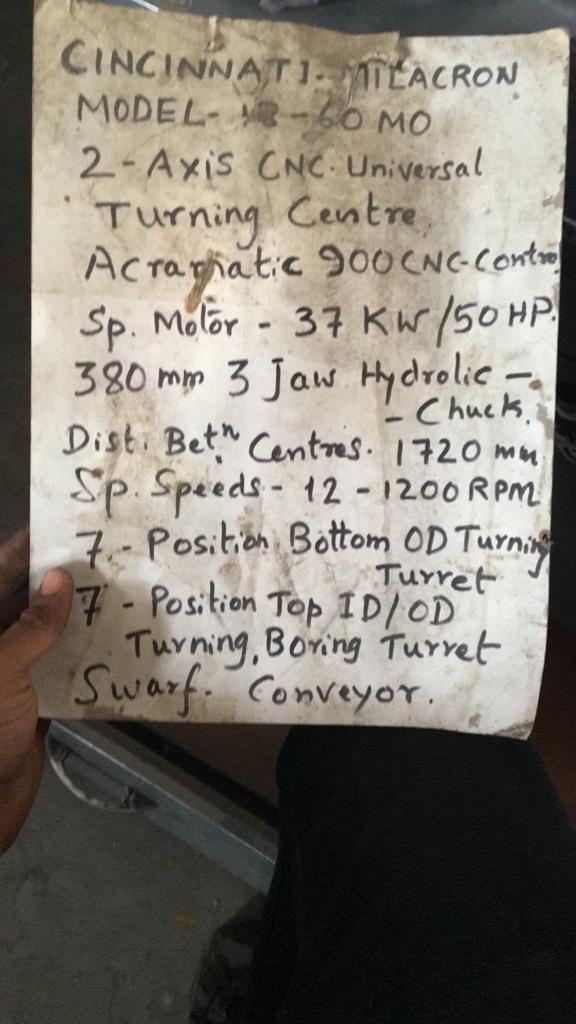 CINCINNATI. MILACRON
MODEL- -60 MO
2-Axis CNC. Universal
Turning Centre.
Acramatic 900 CNC-Contro
Sp. Motor - 37 KW/50 HP.
380 mm 3 Jaw Hydrolic -
- Chuck.
Dist. Betn. Centres. 1720 mm
Sp. Speeds - 12 - 1200 RPM
7 - Position Bottom OD Turning
Turret
7 - Position Top ID/OD
Turning, Boring Turret
Swarf. Conveyor.